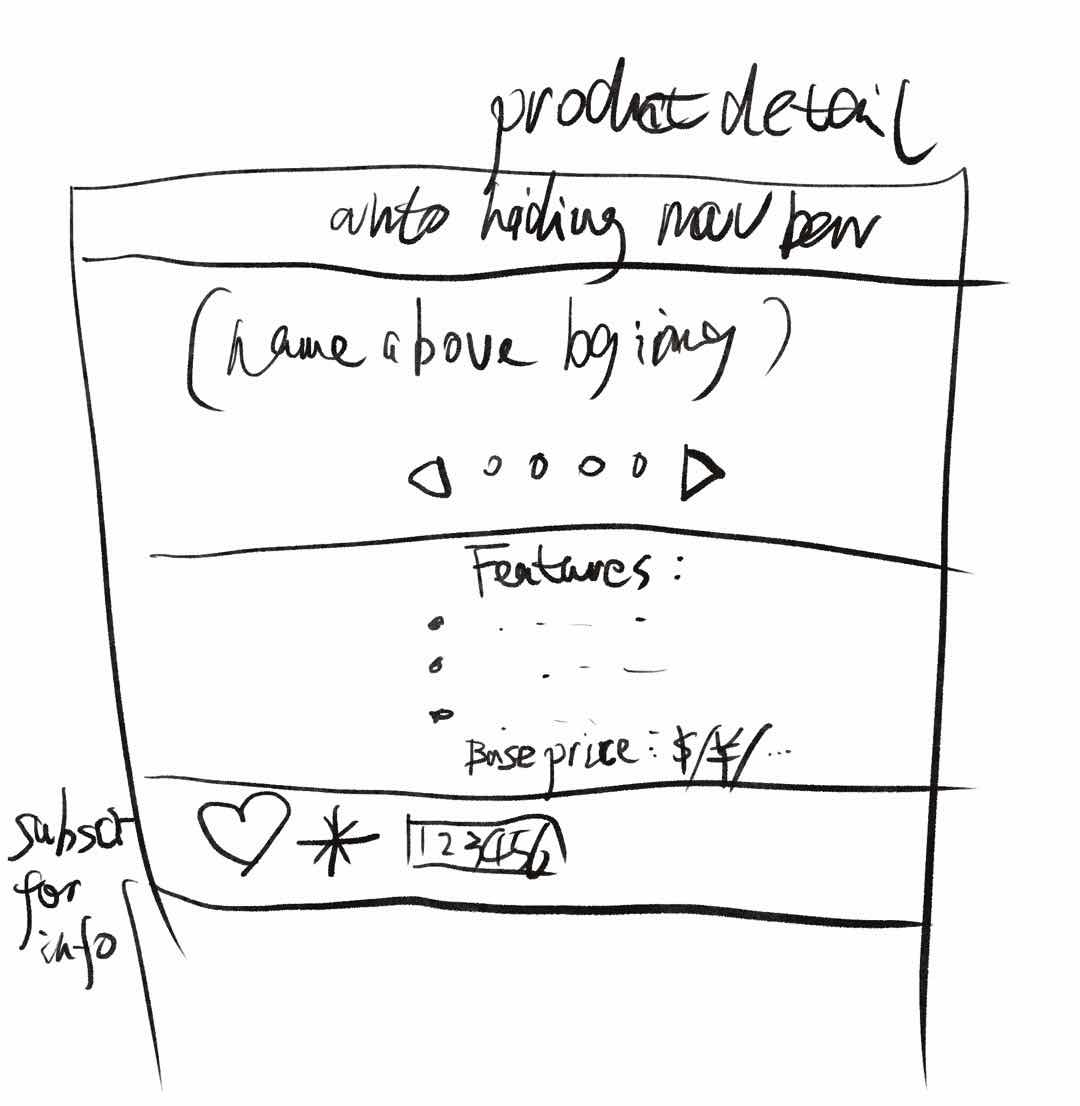 product detail
auto hiding nav bar
(name above bg img)
Features:
Base price: $/¥/...
subscr
for
info
123456